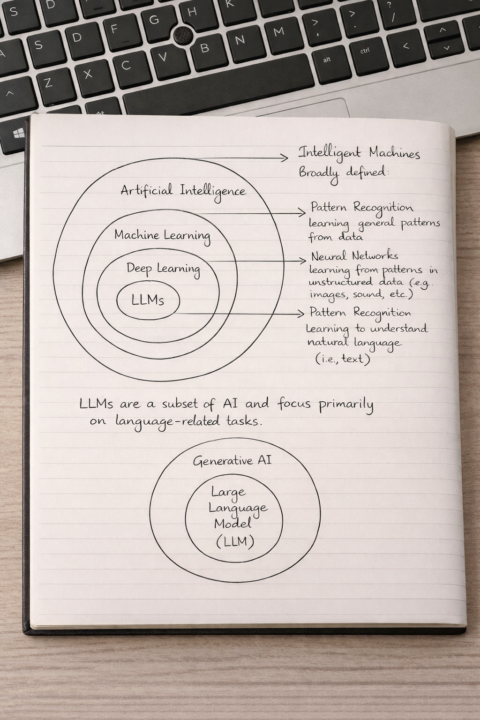 Artificial Intelligence
Machine Learning
Deep Learning
LLMs
Intelligent Machines
Broadly defined
Pattern Recognition
learning general patterns
from data
Neural Networks
learning from patterns in
unstructured data (e.g.
images, sound, etc.)
Pattern Recognition
Learning to understand
natural language
(i.e., text)
LLMs are a subset of AI and focus primarily
on language-related tasks.
Generative AI
Large
Language
Model
(LLM)